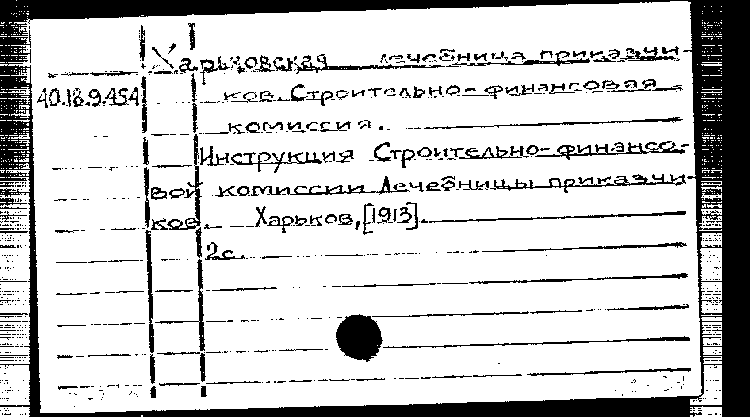 Харьковская лечебница приказчи-
40.18.9.454 ков. Строительно-финансовая
комиссия.
Инструкция Строительно-финансо-
вой комиссии Лечебницы приказчи-
ков. Харьков, [1913].
2с.